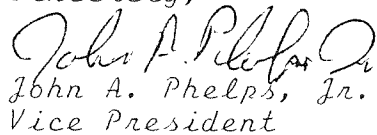 John A. Phelps Jr
John A. Phelps, Jr.
Vice President